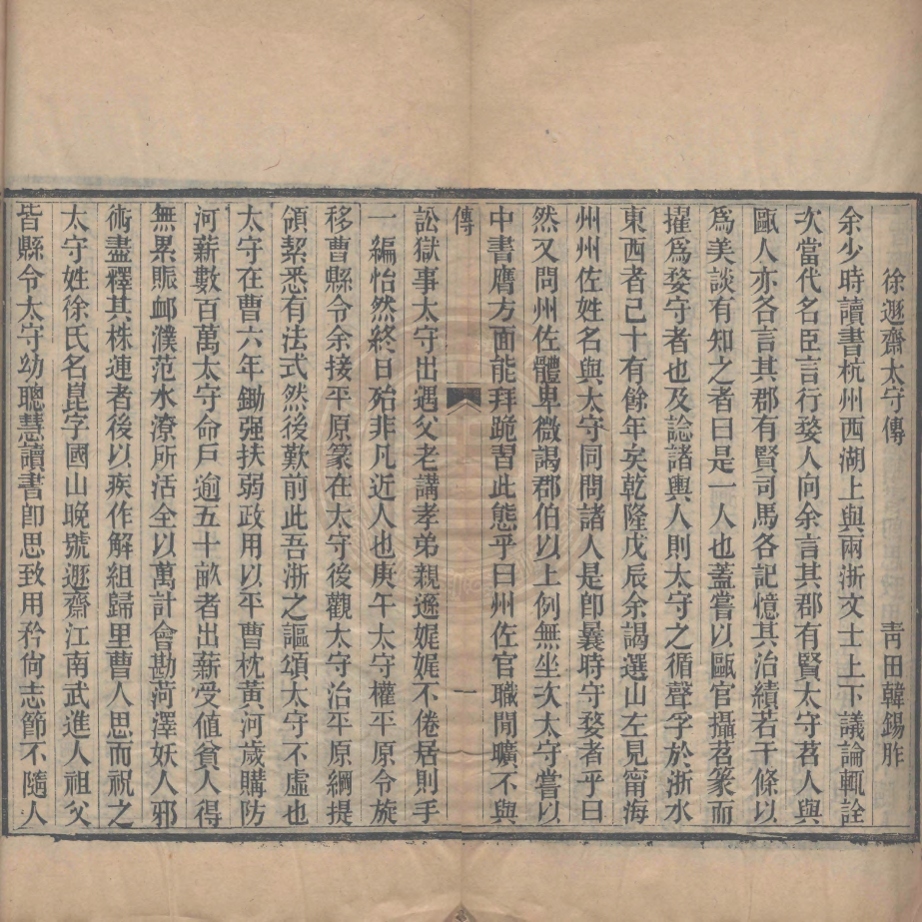 徐遯齋太守傳 青田韓錫胙
余少時讀書杭州西湖上與兩浙文士上下議論輒詮
次當代名臣言行婺人向余言其郡有賢太守苕人與
甌人亦各言其郡有賢司馬各記憶其治績若干條以
爲美談有知之者曰是一人也蓋嘗以甌官攝苕篆而
擢爲婺守者也及諗諸輿人則太守之循聲孚於浙水
東西者已十有餘年矣乾隆戊辰余謁選山左見甯海
州州佐姓名與太守同問諸人是卽曩時守婺者乎曰
然又問州佐體卑微謁郡伯以上例無坐次太守嘗以
中書膺方面能拜跪習此態乎曰州佐官職閒曠不與
傳 一
訟獄事太守出遇父老講孝弟親遜娓娓不倦居則手
一編怡然終日殆非凡近人也庚午太守權平原令旋
移曹縣令余接平原篆在太守後觀太守治平原綱提
領絜悉有法式然後歎前此吾浙之謳頌太守不虛也
太守在曹六年鋤强扶弱政用以平曹枕黃河歲購防
河薪數百萬太守命戶逾五十畝者出薪受値貧人得
無累賑卹濮范水潦所活全以萬計會勘菏澤妖人邪
術盡釋其株連者後以疾作解組歸里曹人思而祝之
太守姓徐氏名崑字國山晚號遯齋江南武進人祖父
皆縣令太守幼聰慧讀書卽思致用矜尙志節不隨人